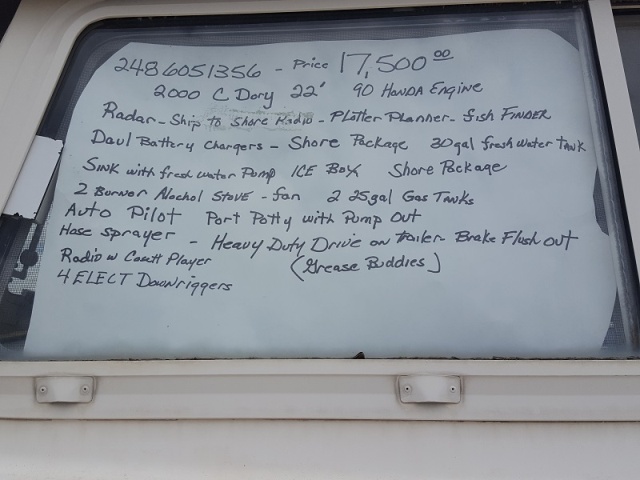 2486051356 - Price 17,500.00
2000 C Dory 22' 90 HONDA ENgiNE
Radar - Ship to Shore Radio - Plotter Planner - fish FiNDER
Daul Battery Chargers - Shore Package 30gal fresh water Tank
SiNK with fresh water Pump ICE BOX Shore Package
2 Burnor Alochol Stove - fan 2 25gal Gas Tanks
Auto Pilot Port Potty with Pump out
Hose sprayer - Heavy Duty Drive on trailer - Brake Flush out
Radio w Casett Player (Grease Buddies)
4 ELECT Downriggers